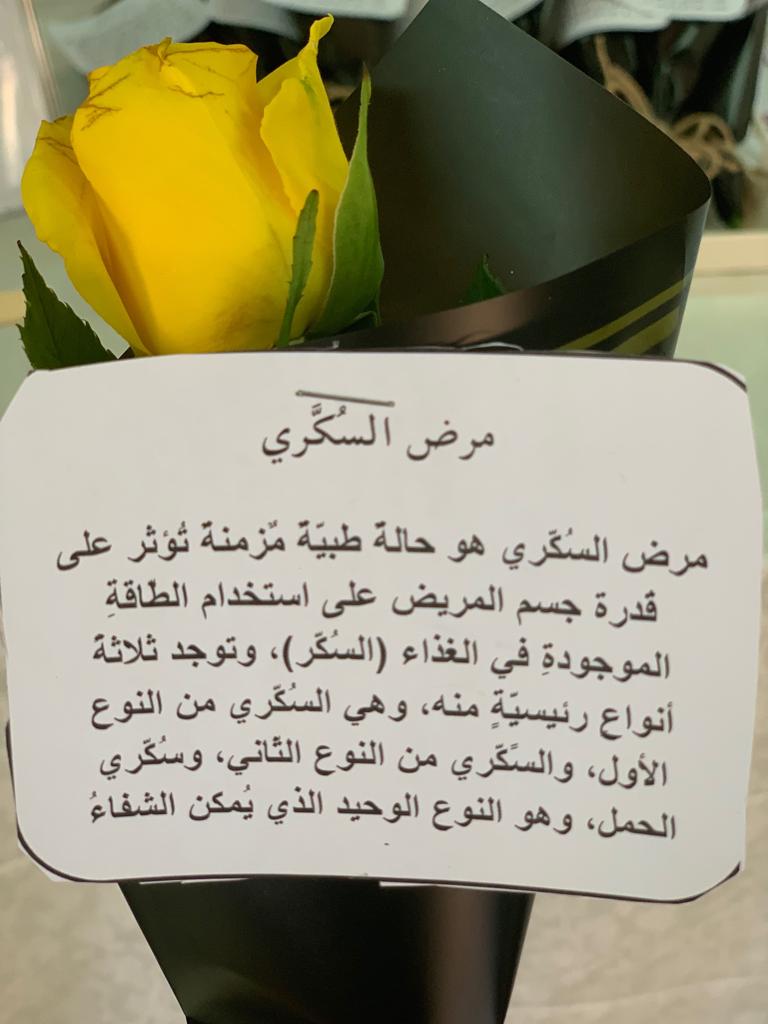 مرض السُكَّري
مرض السُكّري هو حالة طبيّة مٌزمنة تُؤثر على
قدرة جسم المريض على استخدام الطّاقةِ
الموجودةِ في الغذاء (السُكّر)، وتوجد ثلاثة
أنواع رئيسيّةٍ منه، وهي السُكّري من النوع
الأول، والسًكّري من النوع الثّاني، وسُكّري
الحمل، وهو النوع الوحيد الذي يُمكن الشفاءُ